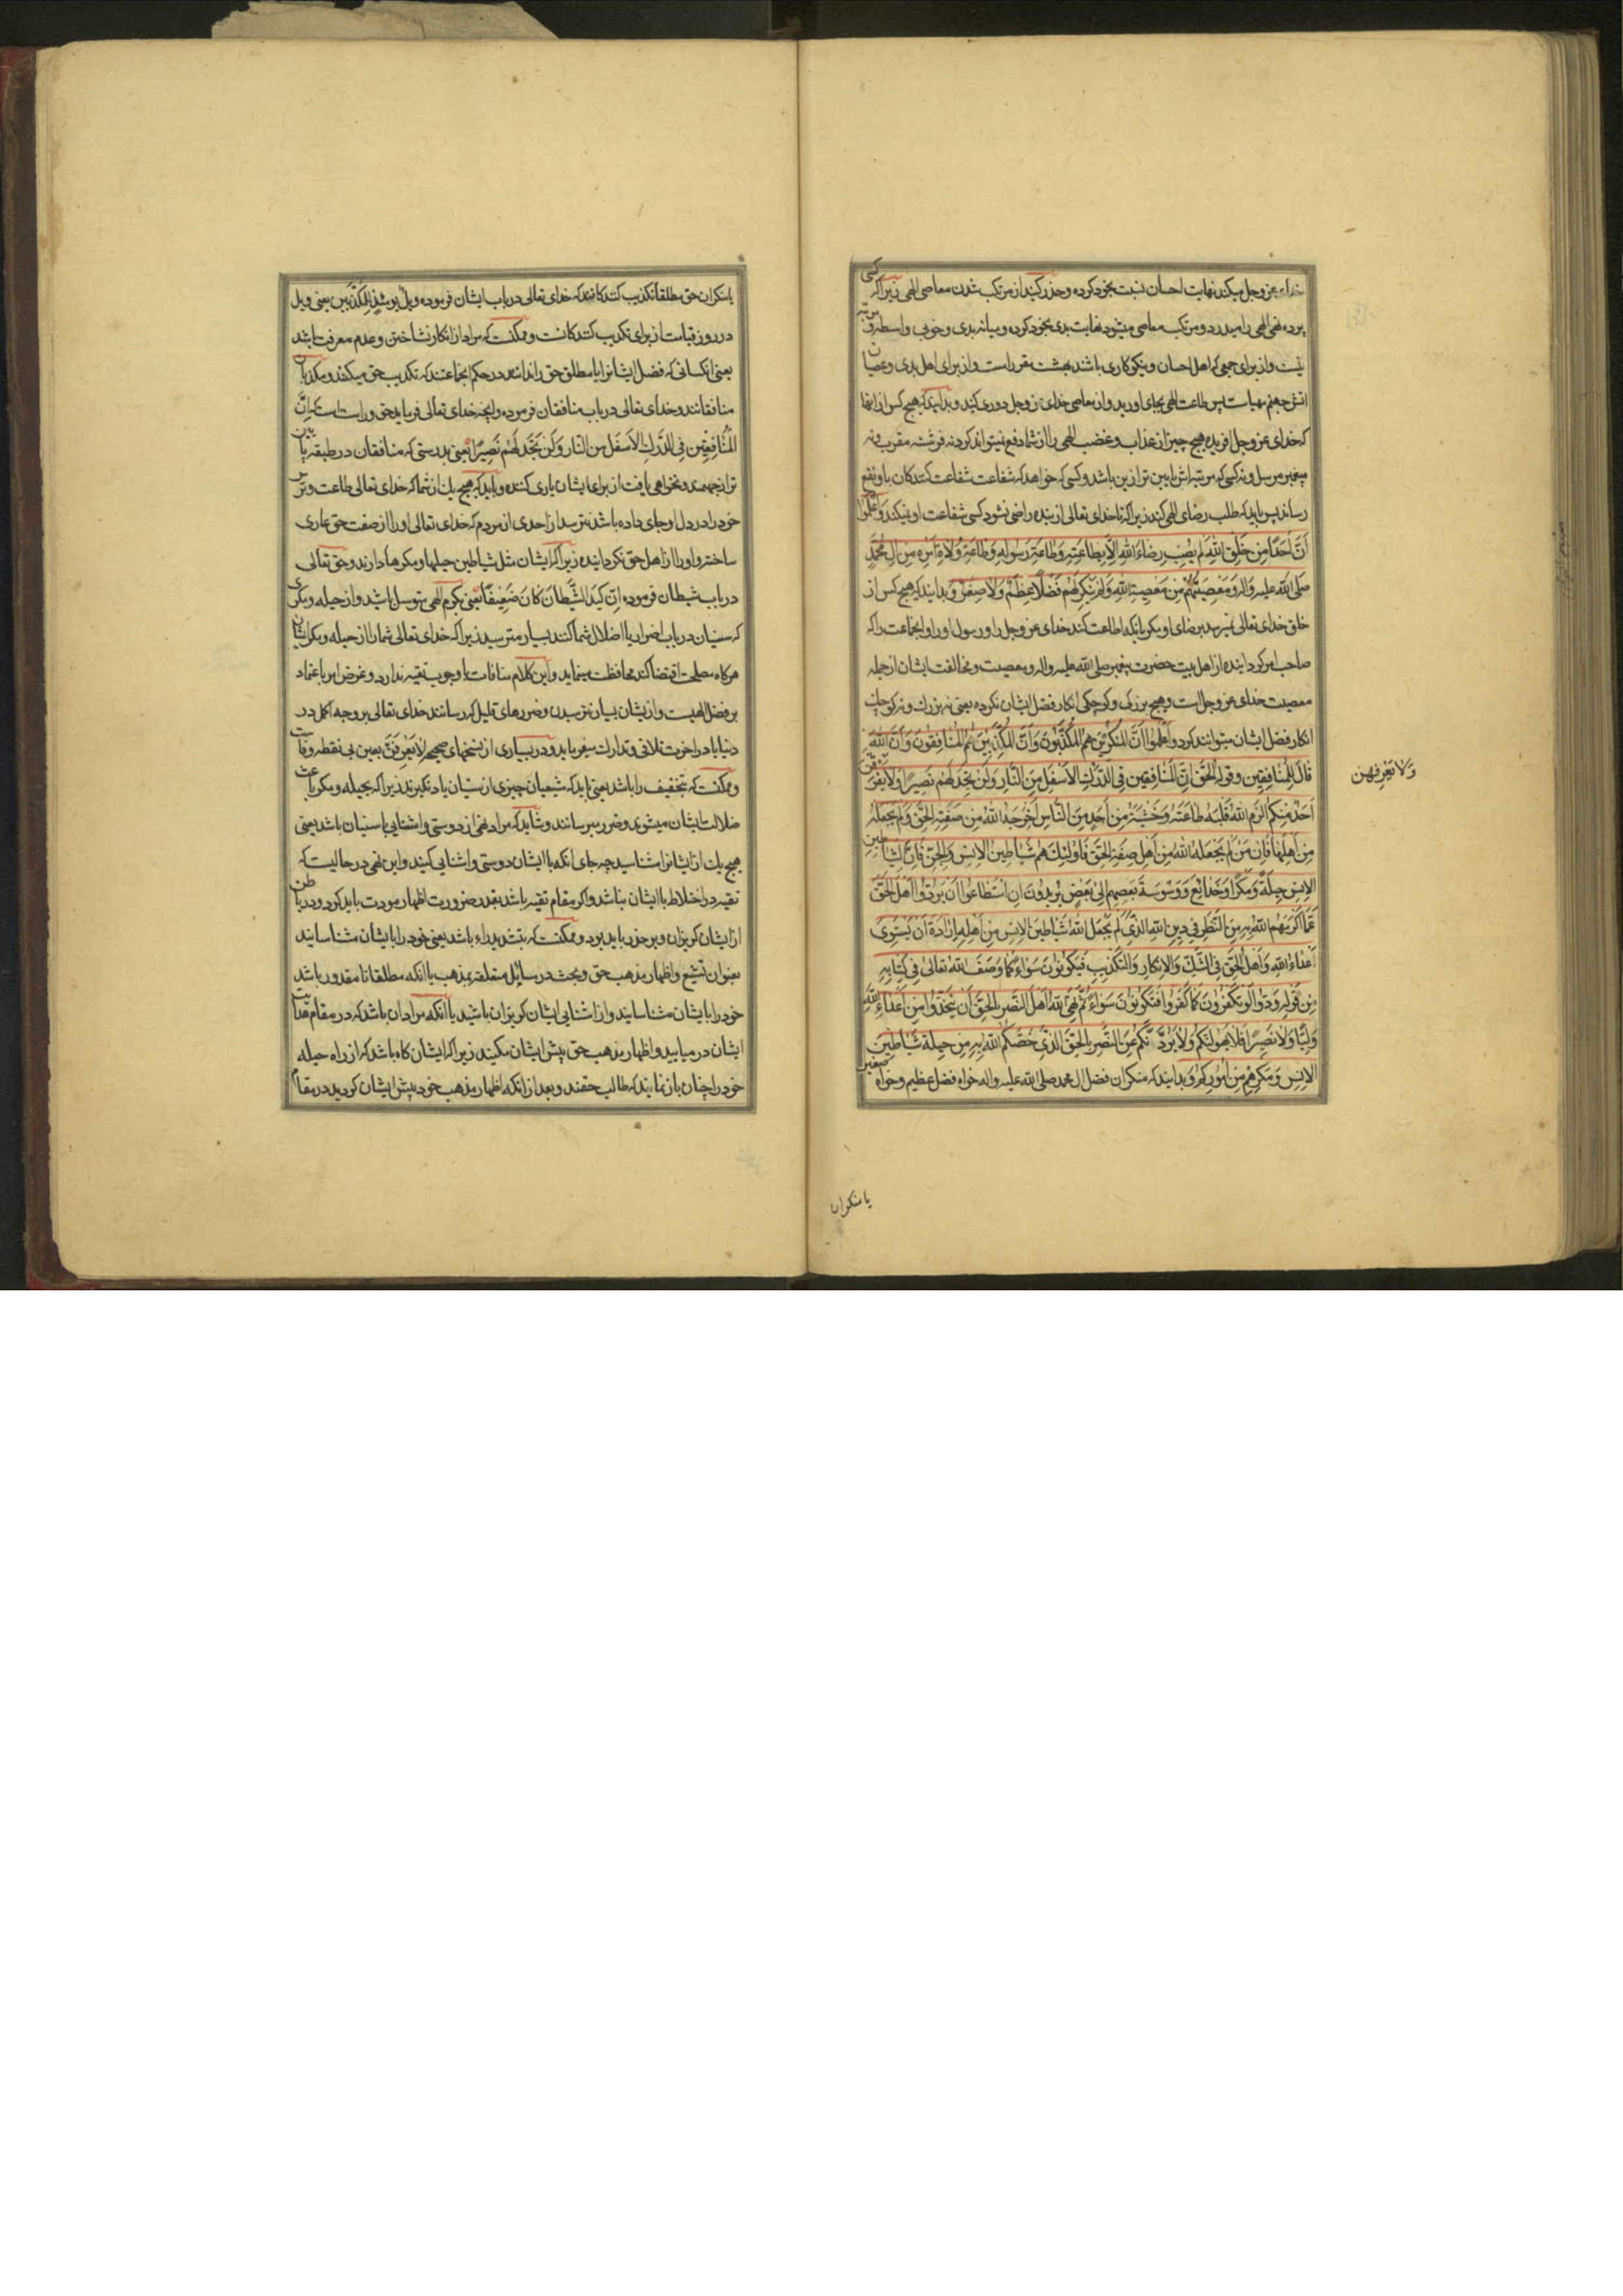 خدای عز و جل میکند نهایت احسان نسبت بخود کرده و حذر کنید از مرتکب شدن معاصی الهی زیرا که کسی
پرده نهی الهی را میدرد و مرتکب معاصی میشود نهایت بدی بخود کرده و میانه بدی و خوبی واسطه و مرتبه
نیست و از برای جمعی که اهل احسان و نیکوکاری باشند بهشت مقرر است و از برای اهل بدی و عصیان
آتش جهنم مهیاست پس طاعت الهی بجای اورید و از معاصی خدای عز و جل دوری کنید و بدانید که هیچ کس از آنها
که خدای عز و جل افریده هیچ چیز از عذاب و غضب الهی را از شما دفع نمیتواند کرد نه فرشته مقرب و نه
پیغمبر مرسل و نه کسی که مرتبه اش پایین تر ازین باشد و کسی که خواهد که شفاعت شفاعت کنندکان باو نفع
رساند پس باید که طلب رضای الهی کند زیرا که تا خدای تعالی از بنده راضی نشود کسی شفاعت او نمیکند وَاعْلَمُوا
اَنَّ اَحَدًا مِنْ خَلْقِ اللهِ لَمْ یُصِبْ رِضَاءَ اللهِ اِلاَّ بِطَاعَتِهِ وَطَاعَةِ رَسُولِهِ وَطَاعَةِ وُلاَةِ اَمْرِهِ مِنْ الِ مُحَمَّدٍ
صلی الله علیه واله وَمَعْصِیَتُهُمْ مِنْ مَعْصِیَةِ اللهِ وَلَمْ یُنْکِرْ لَهُمْ فَضْلاً عَظُمَ وَلاَ صَغُرَ و بدانید که هیچ کس از
خلق خدای تعالی نمیرسد برضای او مکر بانکه اطاعت کند خدای عز و جل را و رسول او را و انجماعت را که
صاحب امر کردانیده از اهل بیت حضرت پیغمبر صلی الله علیه واله و معصیت و مخالفت ایشان از جمله
معصیت خدای عز و جل است و هیچ بزرکی و کوچکی انکار فضل ایشان نکرده یعنی نه بزرک و نه کوچک
انکار فضل ایشان میتوانند کرد وَاعْلَمُوا اَنَّ الْمُنْکِرِینَ هُمُ الْمُکَذِّبُونَ وَاَنَّ الْمُکَذِّبِینَ هُمُ الْمُنَافِقُونَ وَاَنَّ اللهَ
قَالَ لِلْمُنَافِقِینَ وَقَوْلُهُ الْحَقُّ اِنَّ الْمُنَافِقِینَ فِی الدَّرْکِ الاَسْفَلِ مِنَ النَّارِ وَلَنْ تَجِدَ لَهُمْ نَصِیرًا وَلاَ یَفْرَقَنَّ
اَحَدٌ مِنْکُمْ اَلْزَمَ اللهُ قَلْبَهُ طَاعَتَهُ وَخَشْیَتَهُ مِنْ اَحَدٍ مِنَ النَّاسِ اَخْرَجَهُ اللهُ مِنْ صِفَةِ الْحَقِّ وَلَمْ یَجْعَلْهُ
مِنْ اَهْلِهَا فَاِنَّ مَنْ لَمْ یَجْعَلْهُ اللهُ مِنْ اَهْلِ صِفَةِ الْحَقِّ فَاُولٰئِکَ هُمْ شَیَاطِینُ الاِنْسِ وَالْجِنِّ فَاِنَّ لِشَیَاطِینِ
الاِنْسِ حِیلَةً وَمَکْرًا وَخَدَائِعَ وَوَسْوَسَةَ بَعْضِهِمْ اِلٰی بَعْضٍ یُرِیدُونَ اِنِ اسْتَطَاعُوا اَنْ یَرُدُّوا اَهْلَ الْحَقِّ
عَمَّا اَکْرَمَهُمُ اللهُ بِهِ مِنَ النَّظَرِ فِی دِینِ اللهِ الَّذِی لَمْ یَجْعَلِ اللهُ شَیَاطِینَ الاِنْسِ مِنْ اَهْلِهِ اِرَادَةَ اَنْ یَسْتَوِیَ
اَعْدَاءُ اللهِ وَاَهْلُ الْحَقِّ فِی الشَّکِّ وَالاِنْکَارِ وَالتَّکْذِیبِ فَیَکُونُونَ سَوَاءً کَمَا وَصَفَ اللهُ تَعَالٰی فِی کِتَابِهِ
مِنْ قَوْلِهِ وَدُّوا لَوْ تَکْفُرُونَ کَمَا کَفَرُوا فَتَکُونُونَ سَوَاءً ثُمَّ نَهَی اللهُ اَهْلَ النَّصْرِ بِالْحَقِّ اَنْ یَتَّخِذُوا مِنْ اَعْدَاءِ اللهِ
وَلِیًّا وَلاَ نَصِیرًا فَلاَ یُهَوِّلَنَّکُمْ وَلاَ یَرُدَّنَّکُمْ عَنِ النَّصْرِ بِالْحَقِّ الَّذِی خَصَّکُمُ اللهُ بِهِ مِنْ حِیلَةِ شَیَاطِینِ
الاِنْسِ وَمَکْرِهِمْ مِنْ اُمُورِکُمْ و بدانید که منکران فضل ال محمد صلی الله علیه واله خواه فضل عظیم و خواه صغیر
وَلاَ یَعْرِفَهُنَّ
یا منکران
یا منکران حق مطلقا تکذیب کنندکانند که خدای تعالی در باب ایشان فرموده وَیْلٌ یَوْمَئِذٍ لِلْمُکَذِّبِینَ یعنی ویل
در روز قیامت از برای تکذیب کنندکانست و ممکنست که مراد از انکار نشناختن و عدم معرفت باشد
یعنی انکسانی که فضل ایشانرا یا مطلق حق را ندانند در حکم انجماعتند که تکذیب حق میکنند و مکذبان
منافقانند و خدای تعالی در باب منافقان فرموده و انچه خدای تعالی فرماید حق و راست است که اِنَّ
الْمُنَافِقِینَ فِی الدَّرْکِ الاَسْفَلِ مِنَ النَّارِ وَلَنْ تَجِدَ لَهُمْ نَصِیرًا یعنی بدرستی که منافقان در طبقه پایین
تر از جهنمند و نخواهی یافت از برای ایشان یاری کننده و باید که هیچ یک از شما که خدای تعالی طاعت و ترس
خود را در دل او جای داده باشد نترسد از احدی از مردم که خدای تعالی او را از صفت حق عاری
ساخته و او را از اهل حق نکردانیده زیرا که ایشان مثل شیاطین حیلها و مکرها دارند و حق تعالی
در باب شیطان فرموده اِنَّ کَیْدَ الشَّیْطَانِ کَانَ ضَعِیفًا یعنی بکرم الهی متوسل باشید و از حیله و مکری
که سنیان در باب اضرار یا اضلال شما کنند بسیار مترسید زیرا که خدای تعالی شما را از حیله و مکر ایشان
هرکاه مصلحت اقتضا کند محافظت مینماید و این کلام منافات با وجوب تقیه ندارد و غرض امر باعتماد
بر فضل الهیست و از یشان بسیار نترسیدن و ضررهای قلیل که رسانند خدای تعالی بر وجه اکمل در
دنیا یا در اخرت تلافی و تدارک میفرماید و در بسیاری از نسخهای صحیحه لاَ یَعْرِفَنَّ بعین بی نقطه و فاست
و ممکنست که بتخفیف را باشد یعنی باید که شیعیان چیزی از سنیان یاد نکیرند زیرا که بحیله و مکر باعث
ضلالت ایشان میشوند و ضرر میرسانند و شاید که مراد نهی از دوستی و اشنایی با سنیان باشد یعنی
هیچ یک از ایشانرا مشناسید چه جای انکه با ایشان دوستی و اشنایی کنید و این نهی در حالیست که
تقیه در اختلاط با ایشان نباشد و اکر مقام تقیه باشد بقدر ضرورت اظهار مودت باید کرد و در باطن
از ایشان کریزان و بر حذر باید بود و ممکنست که بتشدید راء باشد یعنی خود را بایشان مشناسانید
بعنوان تشیع و اظهار مذهب حق و بحث در مسائل متعلقه بمذهب یا انکه مطلقا تا مقدور باشد
خود را بایشان مشناسانید و از اشنایی ایشان کریزان باشید یا انکه مراد ان باشد که در مقام هدایت
ایشان در میایید و اظهار مذهب حق پیش ایشان مکنید زیرا که ایشان کاه باشد که از راه حیله
خود را چنان باز نمایند که طالب حقند و بعد از انکه اظهار مذهب خود پیش ایشان کردید در مقام